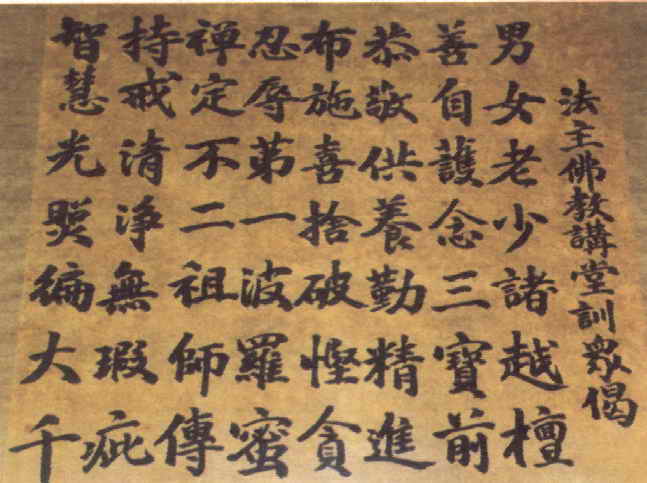 法主佛教講堂訓眾偈
男女老少諸越檀
善自護念三寶前
恭敬供養勤精進
布施喜捨破慳貪
忍辱第一波羅蜜
禅定不二祖師傳
持戒清淨無瑕疵
智慧光照徧大千